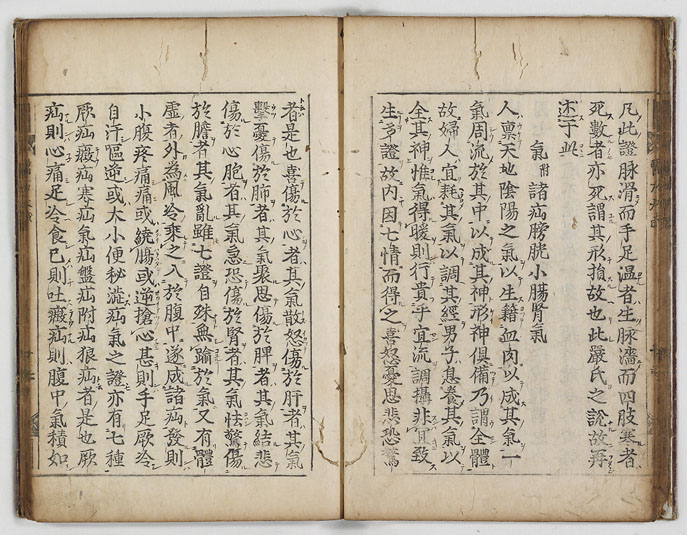 凡此證脉滑而手足温者生脉濇而四肢寒者
死數者亦死謂其形損故也此嚴氏之說故再
述于此
氣附諸疝膀胱小腸氣
人禀天地陰陽之氣以生藉血肉以成其氣一
氣周流於其中以成其神形神俱備乃謂全體
故婦人宜耗其氣以調其經男子息養其氣以
全其神惟氣得暖則行貴乎宜流調攝非宜致
生多證故内因七情而得之喜怒憂思悲恐驚
者是也喜傷於心者其氣散怒傷於肝者其氣
擊憂傷於肺者其氣聚思傷於脾者其氣結悲
傷於心胞者其氣急恐傷於腎者其氣怯驚傷
於膽者其氣亂雖七證自殊無踰於氣又有體
虚者外為風冷乘之入於腹中遂成諸疝發則
小腹疼痛痛或繞腸或逆搶心甚則手足厥冷
自汗嘔逆或大小便秘澁疝氣之證亦有七種
厥疝癥疝寒疝氣疝盤疝附疝狼疝者是也厥
疝則心痛足冷食已則吐癥疝則腹中氣積如